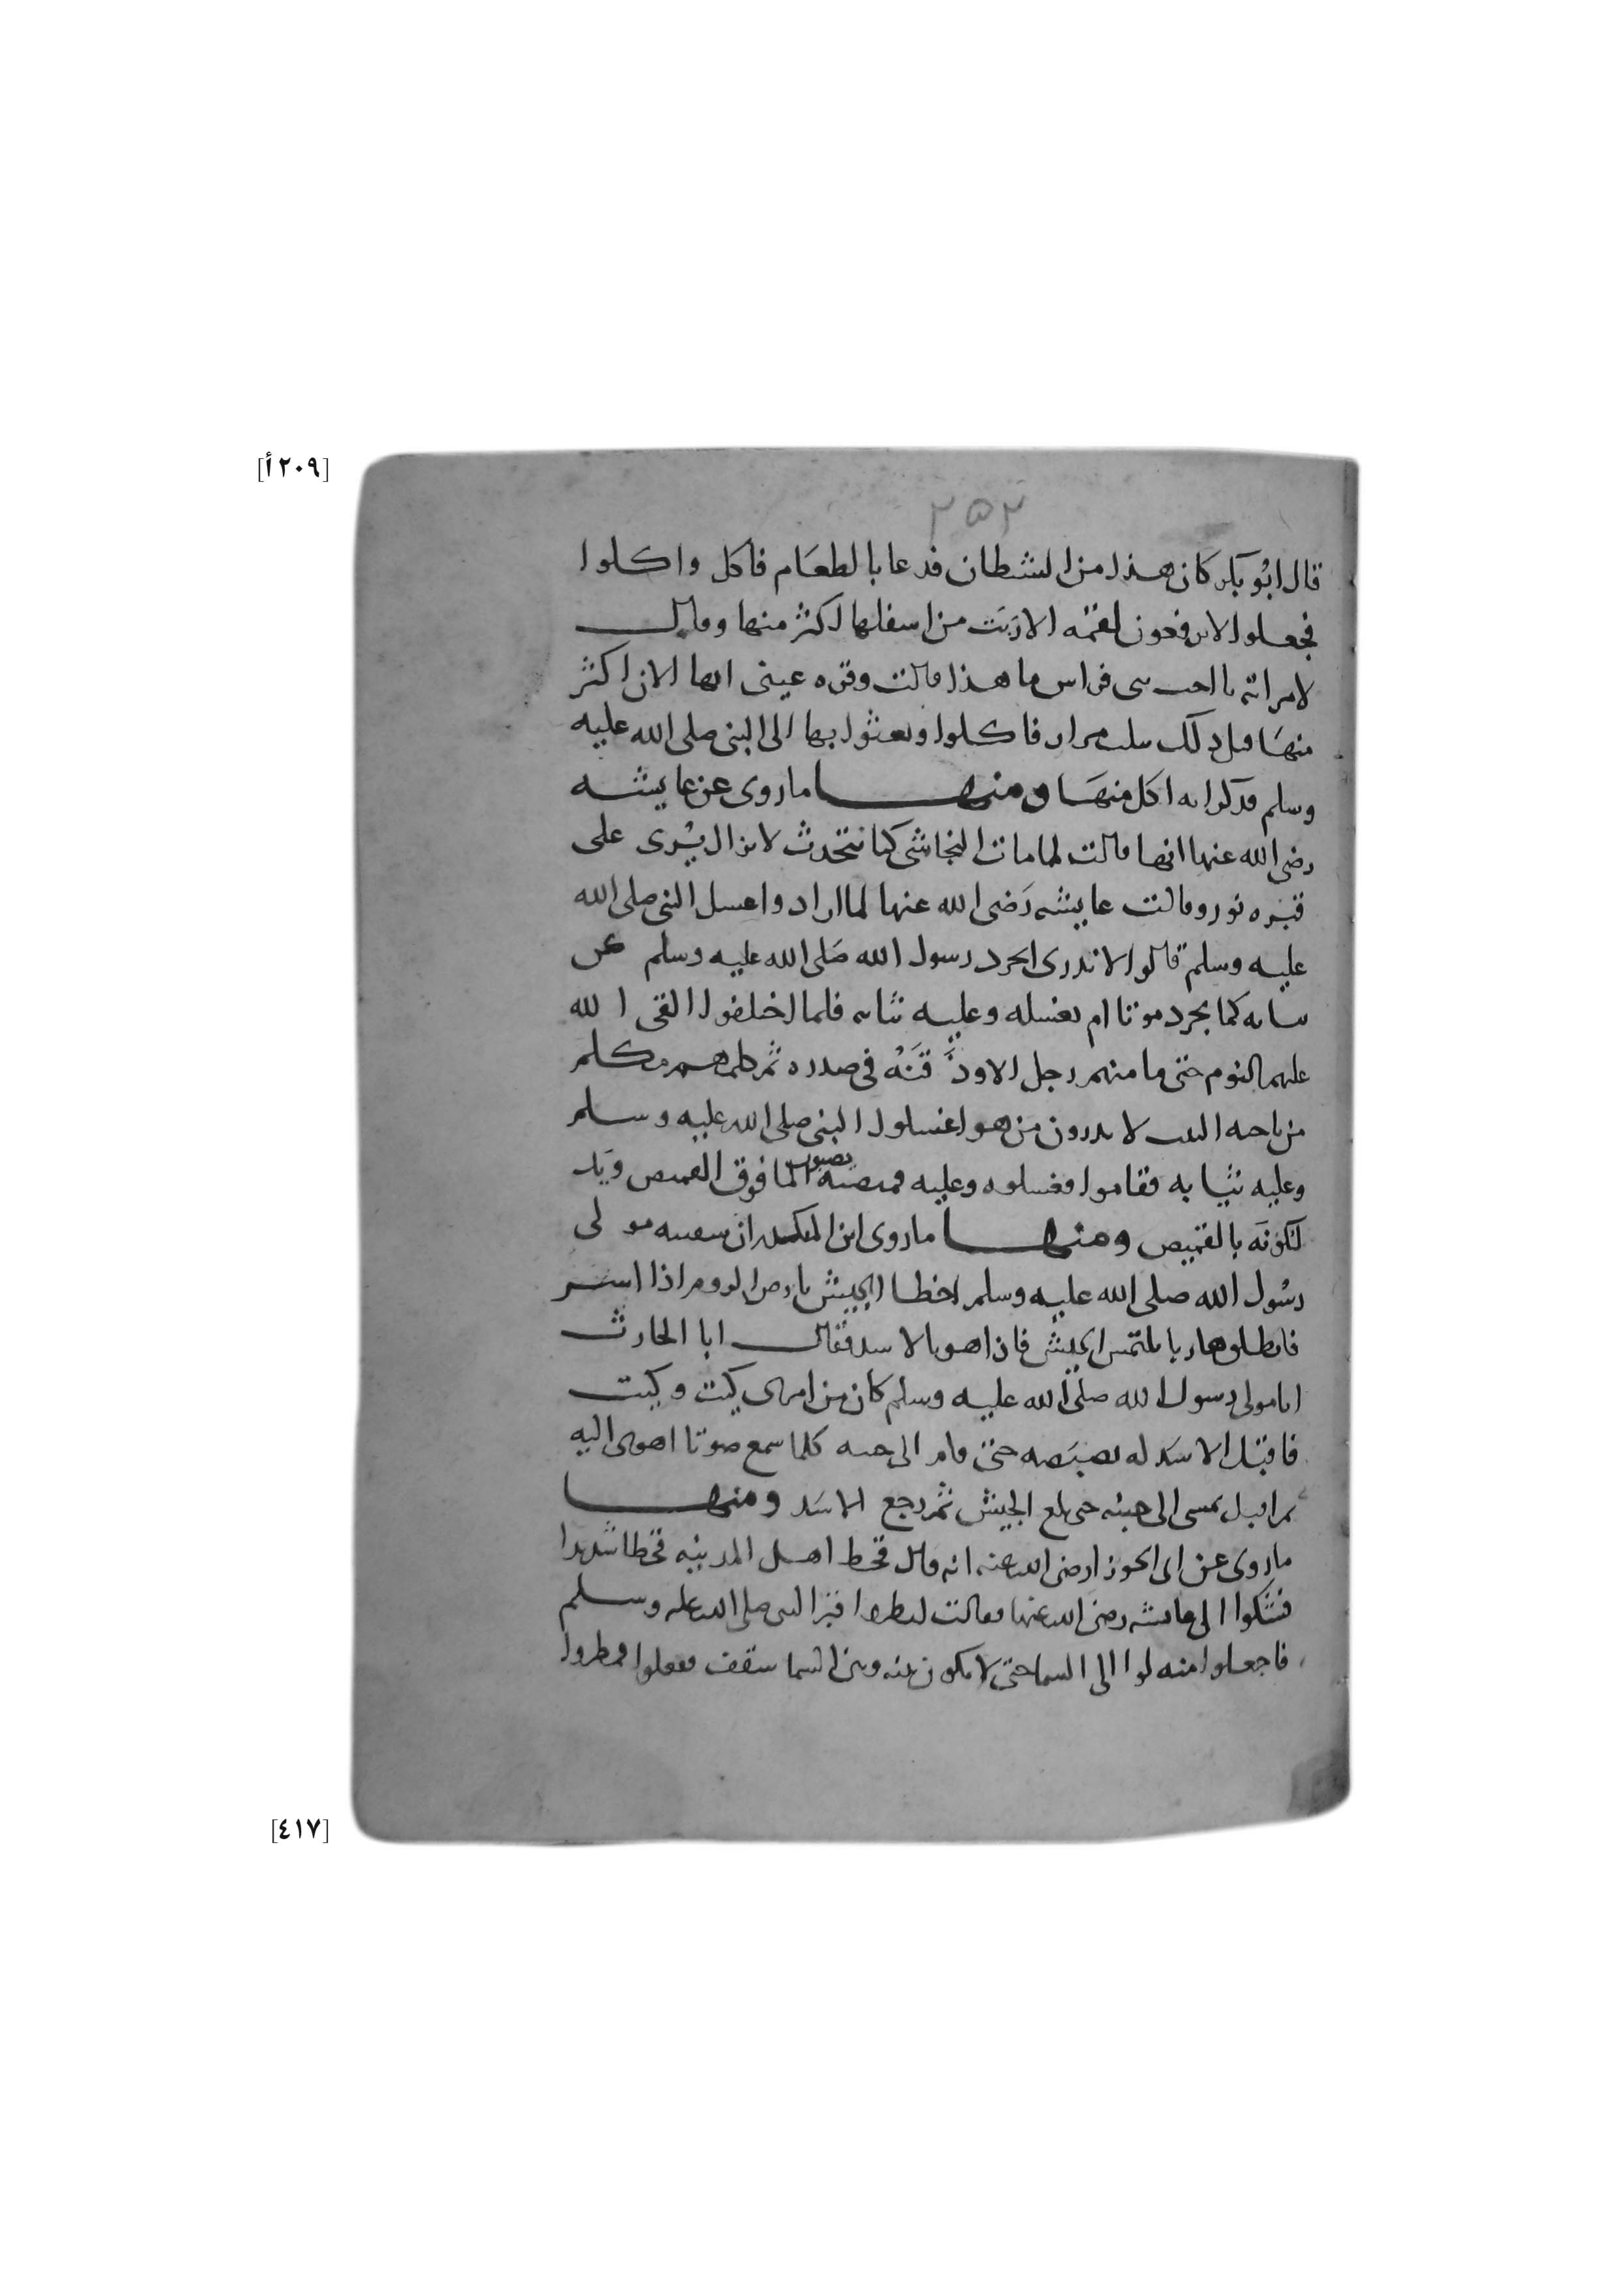 [٢٠٩أ]
٢٥٣
قال ابو بكر كان هذا من الشيطان فدعا بالطعام فاكل واكلوا
فجعلوا لا يرفعون لقمه الا ربت من اسفلها اكثر منها وقال
لامراته يا اخت بنى فراس ما هذا قالت وقره عينى انها الان اكثر
منها قبل ذلك بثلث مرار فاكلوا وبعثوا بها الى النبى صلى الله عليه
وسلم فذكر انه اكل منها ومنها ما روى عن عايشه
رضى الله عنها انها قالت لما مات النجاشى كنا نتحدث لا يزال يرى على
قبره نور وقالت عايشه رضى الله عنها لما ارادوا غسل النبى صلى الله
عليه وسلم قالوا لا ندرى انجرد رسول الله صلى الله عليه وسلم عن
ثيابه كما نجرد موتانا ام نغسله وعليه ثيابه فلما اختلفوا القى الله
عليهم النوم حتى ما منهم رجل الا وذقنه فى صدره ثم كلمهم مكلم
من ناحيه البيت لا يدرون من هو اغسلوا النبى صلى الله عليه وسلم
وعليه ثيابه فقاموا فغسلوه وعليه قميصه يصبون الما فوق القميص ويد
لكونه بالقميص ومنها ما روى ابن المنكدر ان سفينه مولى
رسول الله صلى الله عليه وسلم اخطا الجيش بارض الروم اذا اسر
فانطلق هاربا يلتمس الجيش فاذا هو بالاسد فقال ابا الحارث
انا مولى رسول الله صلى الله عليه وسلم كان من امرى كيت وكيت
فاقبل الاسد له بصبصه حتى قام الى جنبه كلما سمع صوتا اهوى اليه
ثم اقبل يمسى الى جنبه حتى بلغ الجيش ثم رجع الاسد ومنها
ما روى عن ابى الجوزا رضى الله عنه انه قال قحط اهل المدينه قحطا شديدا
فشكوا الى عايشه رضى الله عنها فقالت انظروا قبر النبى صلى الله عليه وسلم
فاجعلوا منه كوا الى السما حتى لا يكون بينه وبين السما سقف ففعلوا فمطروا
[٤١٧]